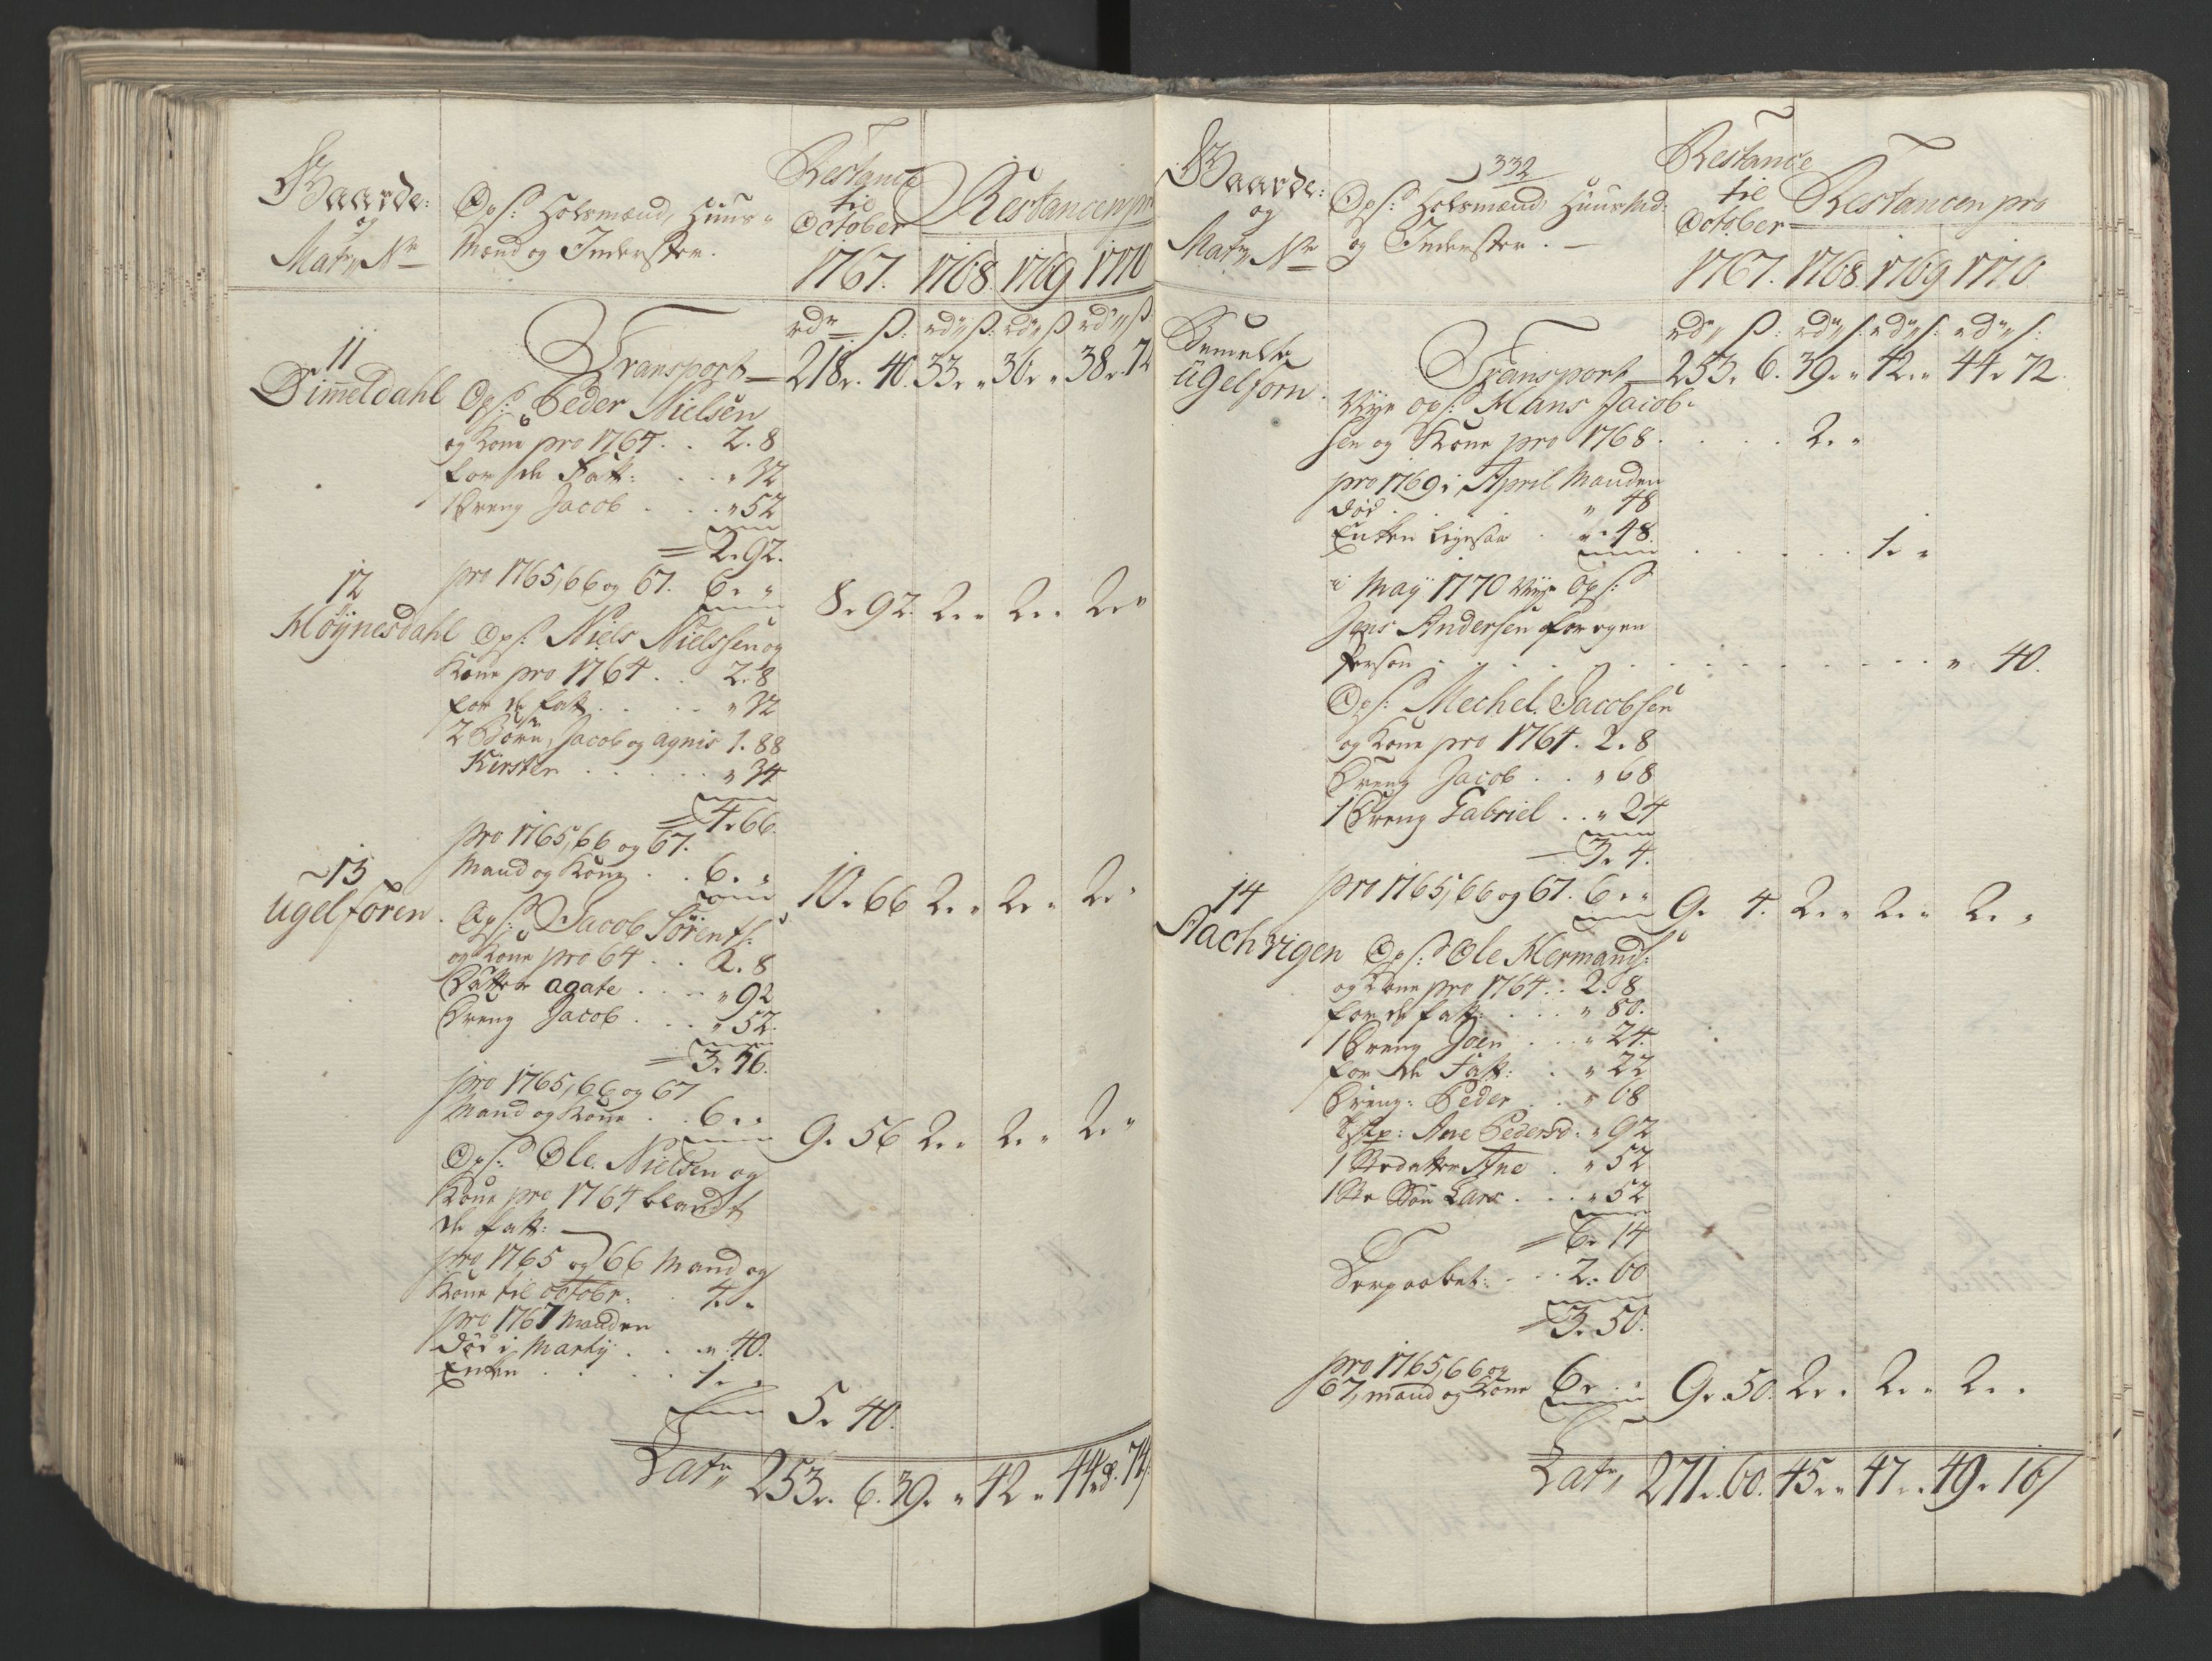 Gaarde:
og
Matr. No
Ops: Holsmænd, Huus-
Mænd og Inderster.
Restance
til
October
1767.
Restancen pro
1768. 1769 1770
rdr ß: rdr ß: rdr ß rdr ß:
Transport 218. 40. 33. " 36. " 38. 72
11
Dimmeldahl
Ops: Peder Nielsen
og Kone pro 1764 . . 2. 8
for de Fatt: . . " 32
1 Dreng Jacob . . . " 52
= 2. 92.
pro 1765, 66 og 67. 6. " 8. 92. 2. " 2. " 2. "
12
Høynesdahl
Ops: Niels Nielssen og
Kone pro 1764 . . 2. 8
for de fatt . . . " 32
2 Børn, Jacob og Agnis 1. 88
Kirsten . . . . . " 34
= 4. 66.
pro 1765, 66 og 67.
Mand og Kone . . 6. " 10. 66 2. " 2. " 2. "
13
Ugelføren.
Ops: Jacob Sørens:
og Kone pro 64 . . 2. 8
Datter Agate . . . " 92
Dreng Jacob . . . " 52.
= 3. 56.
pro 1765, 66 og 67
Mand og Kone . . 6. " 9. 56 2. " 2. " 2. "
Ops: Ole Nielsen og
Kone pro 1764 blandt
de fatt:
pro 1765 og 66 Mand og
Kone til octobr: . 4. "
pro 1767 Manden
død i Martij . . " 40.
Enken . . . . 1. "
5. 40.
Latr 253. 6. 39. " 42 " 44. 72
332
Gaarde:
og
Matr. No
Ops: Holsmænd, Huusmd:
og Inderster. —
Restance
til
October
1767.
Restancen pro
1768. 1769 1770.
rdr ß: rdr ß: rdr ß: rdr ß:
Transport 253. 6. 39. " 42. " 44. 72.
Bemelte
Ugelforn.
Nye ops: Hans Jacob-
sen og Kone pro 1768 . . . . 2. "
pro 1769 i April Manden
død . . . . " 48
Enken ligesaa . " 48. . . . . . 1. "
i May 1770 Nye Ops:
Jens Andersen for egen
Person . . . . . . . . . . . . " 40.
Ops: Mechel Jacobsen
og Kone pro 1764. 2. 8
Dreng Jacob . . " 68
1 Dreng Gabriel . . " 24
3. 4.
pro 1765, 66 og 67. 6. " 9. 4. 2. " 2. " 2. "
14
Aachvigen
Ops: Ole Hermands:
og Kone pro 1764 . . 2. 8
for de fatt: . . . " 80.
1 Dreng Joen . . . " 24.
for de Fatt: . " 22
Dreng: Peder . . " 68
Tstp: Ane Pedersd: " 92
1 Stedatter Ane . " 52
1 Ste Søn Lars . . . " 52
= 6. 14
Derpaabet: . . . 2. 60
= 3. 50.
pro 1765, 66 og
67, mand og Kone 6. " 9. 50. 2. " 2. " 2. "
Latr 271. 60. 45. " 47. " 49. 16